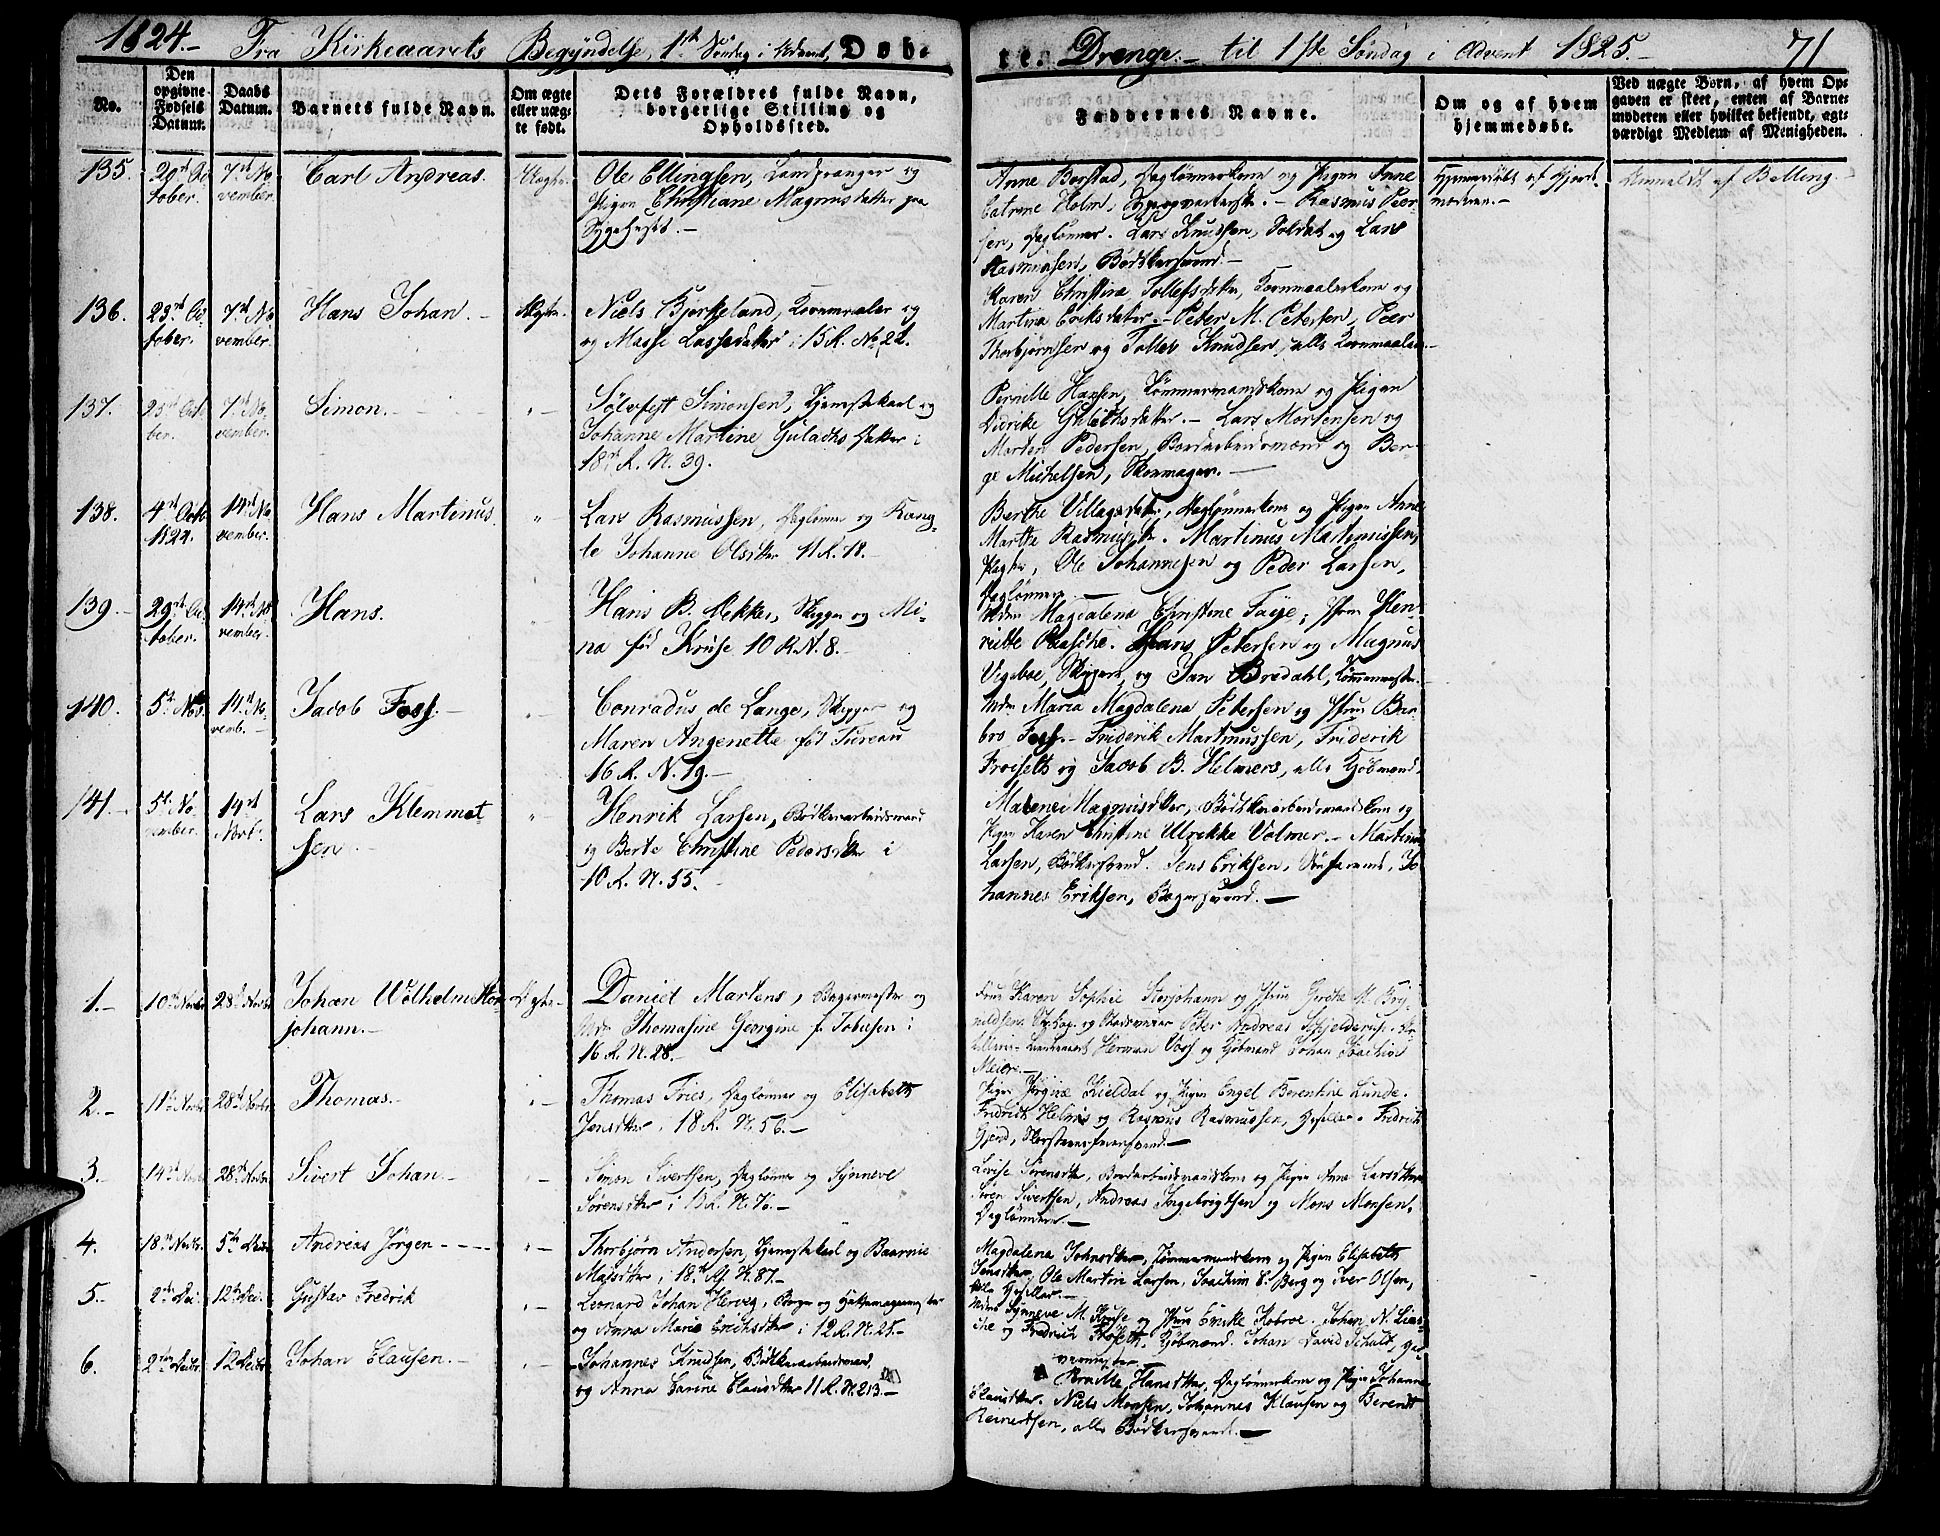 1824. Fra Kirkeaarets Begyndelse, 1ste Søndag i Advent, Døb-
te Drenge. til 1ste Søndag i Advent 1825. 71
No.
Den opgivne Fødsels Datum.
Daabs Datum.
Barnets fulde Navn.
Om ægte eller uægte født.
Dets Forældres fulde Navn, borgerlige Stilling og Opholdssted.
Faddernes Navne.
Om og af hvem hjemmedøbt.
Ved uægte Børn, af hvem Opgaven er skeet, enten af Barnemoderen eller hvilket bekiendt, agtværdigt Medlem af Menigheden.
135. 20de October. 7de November. Carl Andreas. Uægte.
Ole Ellingsen, Landgranger og
Pigen Christiane Magnusdatter paa
Sygehuset.
Anne Borstad, Daglønnerkone og Pigen Anne
Catrine Holm, Sygeopvarterske. Rasmus Peer-
sen, Daglønner. Lars Knudsen, Soldat og Lars
Rasmussen, Bødkersvend.
Hjemmedøbt af Gjord-
moderen.
Anmeldt af Belling.
136. 23de October. 7de November. Hans Johan. Ægte.
Niels Bjørkeland, Kornmaaler og
og Masse Lassedatter i 15 R. No. 22.
Karen Christine Tollefsdatter, Kornmaalerkone og
Martina Eriksdatter. Peter M. Petersen, Peer
Thorbjørnsen og Tollev Knudsen, alle Kornmaalere
137. 25de October. 7de November. Simon.
Sølvfest Simonsen, Tjenestekarl og
Johanne Martine Guladhs Datter i
18de R. N. 39.
Pernille Hansen, Tømmermandskone og Pigen
Didrike Datter. Lars Mortensen og
Morten Pedersen, Bordarbeidsmænd og Ber-
ge Michelsen, Skomager.
138. 4de Octb. 1824. 14de November. Hans Martinus.
Lars Rasmussen, Daglønner og
Johanne Olsdtter 11 R. 18.
Berthe Villagsdatter, Dagløninerkone og Pigen Anne
Martha Rasmusdtr. Martinus Martinussen,
Ole Johannesen og Peder Larsen,
Dagløner.
139. 29de October. 14de November. Hans.
Hans B. Dekke, Skipper og Mi-
na født Kruse 10 R. N. 8.
Mdm Magdalena Christine Faye, Jfru Hen-
riette Plasche. Hans Petersen og Magnus
Vigeboe, Skippere, og Jan Bredahl, Tømmermester.
140. 5te Nov. 14de Novemb. Jacob Foss.
Conradus de Lange, Skipper og
Maren Angenette født Tureau
16 R. N. 19.
Mdm Maria Magdalena Petersen og Jfru Bar-
bro Foss. Friderik Martinussen, Friderik
Froiselts og Jacob B. Helmers, alle Kjøbmænd.
141. 5te November. 14de Novb. Lars Klemmet
sen
Henrik Larsen, Bødkerarbeidsmand
og Berte Christine Pedersdtter i
10 R. N. 55.
Malene Magnusdtter, Bødkerarbeidsmandskone og
Pigen Karen Christine Ulrikke Volmer. Martinus
Larsen, Bødkersvend. Jens Eriksen, Jo-
hannes Eriksen, Bagersvend.
1. 10de Novbr 28de Novbr Johan Wilhelm Stor
johann. Ægte
Daniel Martens, Bagermester og
Mdm Thomasine Georgine f. Tobiesen i
16 R. N. 28.
Fru Karen Sophie Storjohann og Jfru Grethe M. Bry-
nildsen. og Stadsmeier Peter Andreas Schjelderup.
Herman Voss og Kjøbmand Johan Joachim
Meier.
2. 11te Novbr 28de Novbr Thomas.
Thomas Fries, Dagløner og Elisabeth
Jensdtter, 18 R. N. 56.
Pigen Kieldal og Pigen Engel Berentine Lunde.
Fredrich Helms og Rasmus Rasmussen, Geseller. Fredrich
Gjerd, Skorsteensfeiersvend.
3. 14de Novbr 28de Novbr Sivert Johan.
Simon Sivertsen, Dagløner og Synneve
Sørensdtter i 13 R. N. 76.
Lovise Sørensdtr, Bordarbeidsmandskone og Pigen Anne Larsdtter
Søren Sivertsen, Andreas Ingebrigtsen og Mons Monsen,
Daglønnere.
4. 18de Novbr. 5te Decbr. Andreas Jørgen
Thorbjørn Andersen, Tjenestekarl og Baarnie
Matsdtter i 18de R. N. 87.
Magdalena Johnsdtter, Tømmermandskone og Pigen Elisabeth
Jensdtter, Ole Martin Larsen, Joachim C. Berg og Iver Olsen,
alle Geseller.
5. 2de Dec. 12te Dec. Gustav Fredrik
Leonard Johan Herveg, Borger og Hattemager
og Anna Marie Erichsdtter i 12 R. N. 25.
Mdme Synneve M. Kruse og Jfru Enike Kobroe. Johan N. Lins-
che og Fredrich Kjøbmænd. Johan David Schult, Ga-
vermester
6. 2den Decbr. 12 Decbr. Johan Clausen.
Johannes Knudsen, Bødkerarbeidsmand,
og Anna Carine Clausdtter 11 R. N. 213.
Hansdtter, Daglønnerkone og Pigen Johanne
Clausdtter. Niels Monsen, Johannes Klausen og Berendt
Reinertsen, alle Bødkersvende.